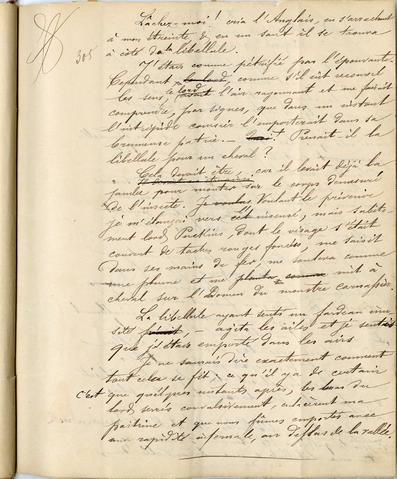 385
Lâchez-moi ! cria l'Anglais, en s'arrachant
à mon étreinte, & en un saut il se trouva
à côté de la libellule.
J'étais comme pétrifié par l'épouvante.
Cependant le lord, comme s'il eût reconnu
les sens, avait l'air rayonnant et me faisait
comprendre, par signes, que dans un instant
l'intrépide coursier l'emporterait dans sa
brumeuse patrie. Prenait-il la
libellule pour un cheval ?
Cela devait être, car il levait déjà la
jambe pour monter sur le corps
de l'insecte. Je Voulant le prévenir
je m'élançai vers cet insensé, mais subite-
ment lord Puckins, dont le visage s'était
couvert de taches rouges foncées, me saisit
dans ses mains de fer, me souleva comme
une plume et me mit à
cheval sur l'abdomen du monstre carnassier.
La libellule ayant senti un fardeau
, – agita les ailes et je sentis
que j'étais emporté dans les airs
Je ne saurais dire exactement comment
tout cela se fit, ce qu'il y a de certain
c'est que quelques instants après, les bras du
lord, serrés convulsivement, enlacèrent ma
poitrine et que nous fûmes emportés avec
une rapidité infernale, au dessus de la vallée.